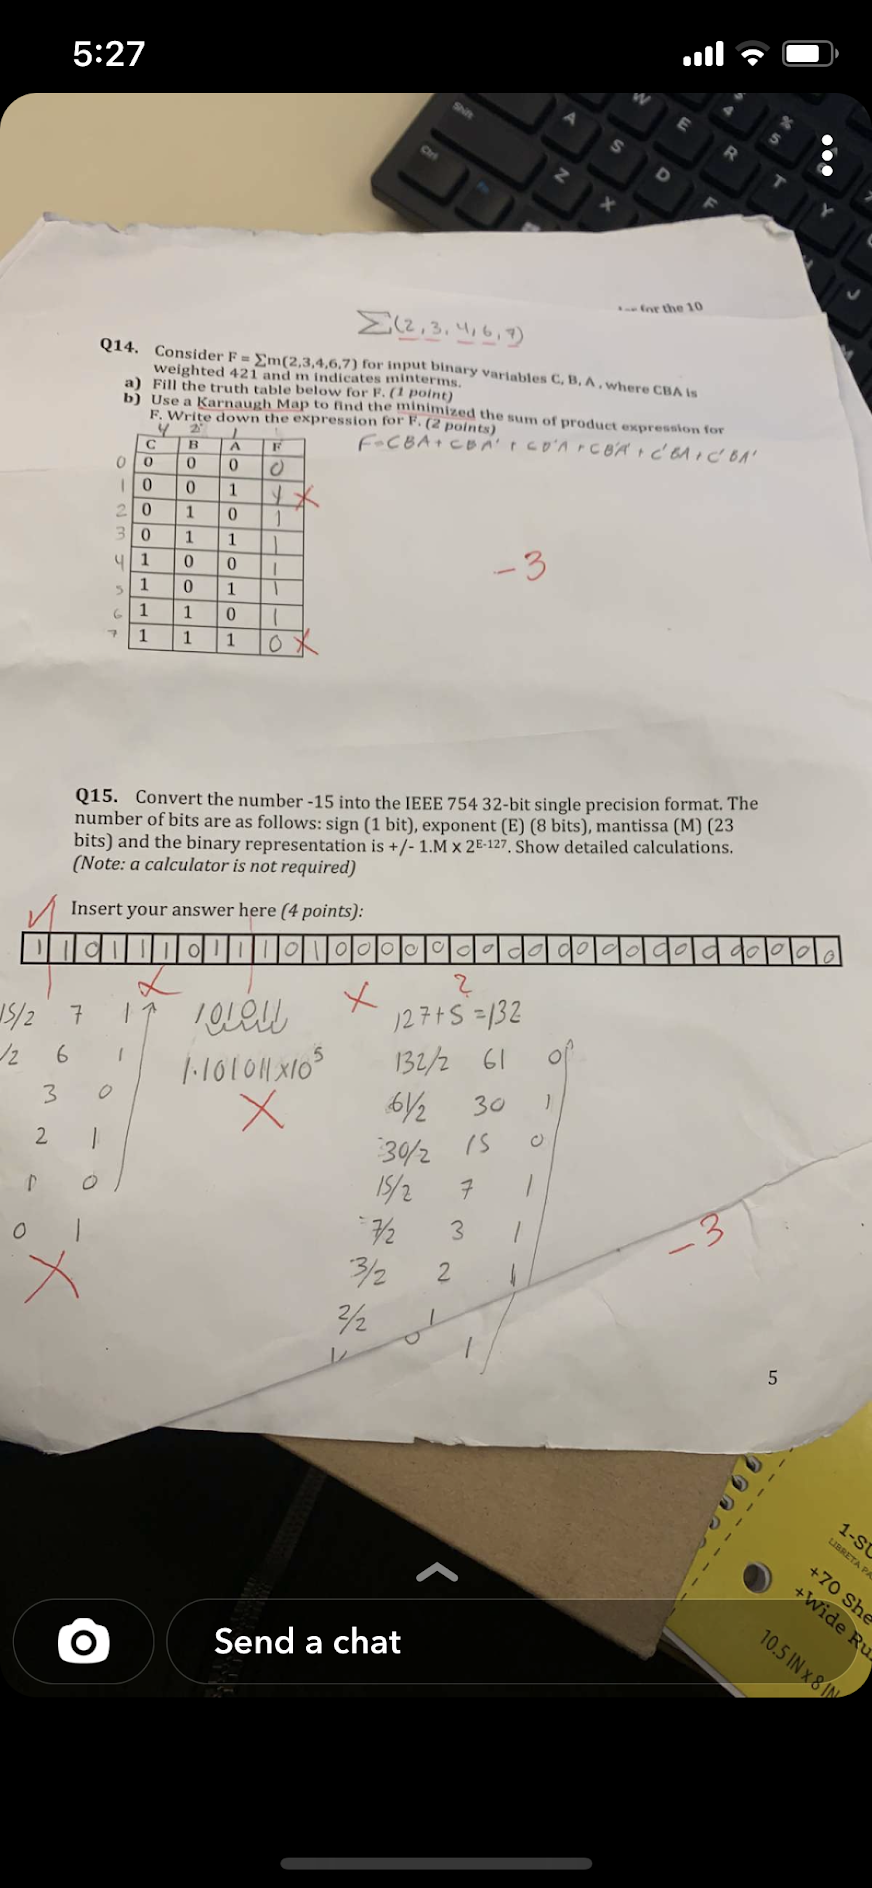 5:27
Shift
Ctrl
Z
X
A
S
D
F
W
E
R
T
Y
4
%
5
J
for the 10
Σ(2,3,4,6,7)
Q14. Consider F = Σm(2,3,4,6,7) for input binary variables C, B, A , where CBA is
weighted 421 and m indicates minterms.
a) Fill the truth table below for F. (1 point)
b) Use a Karnaugh Map to find the minimized the sum of product expression for
F. Write down the expression for F. (2 points)
4 2 1
C B A F
0 0 0 0 0
1 0 0 1 X
2 0 1 0 1
3 0 1 1 1
4 1 0 0 1
5 1 0 1 1
6 1 1 0 1
7 1 1 1 0 X
F=CBA+CBA'+CB'A+CB'A'+C'BA+C'BA'
-3
Q15. Convert the number -15 into the IEEE 754 32-bit single precision format. The
number of bits are as follows: sign (1 bit), exponent (E) (8 bits), mantissa (M) (23
bits) and the binary representation is +/- 1.M x 2E-127. Show detailed calculations.
(Note: a calculator is not required)
Insert your answer here (4 points):
1 1 0 1 1 1 0 1 1 1 0 1 0 0 0 0 0 0 0 0 0 0 0 0 0 0 0 0 0 0 0
15/2 7 1
/2 6 1
3 0
2 1
1 0
0 1
X
101011
1.101011x10⁵
X
X
?
127+5=132
132/2 61 0
61/2 30 1
30/2 15 0
15/2 7 1
7/2 3 1
3/2 2 1
2/2 1
0 1
-3
5
1-SU
+70 She
+Wide Ru
10.5 IN x 8 IN
Send a chat